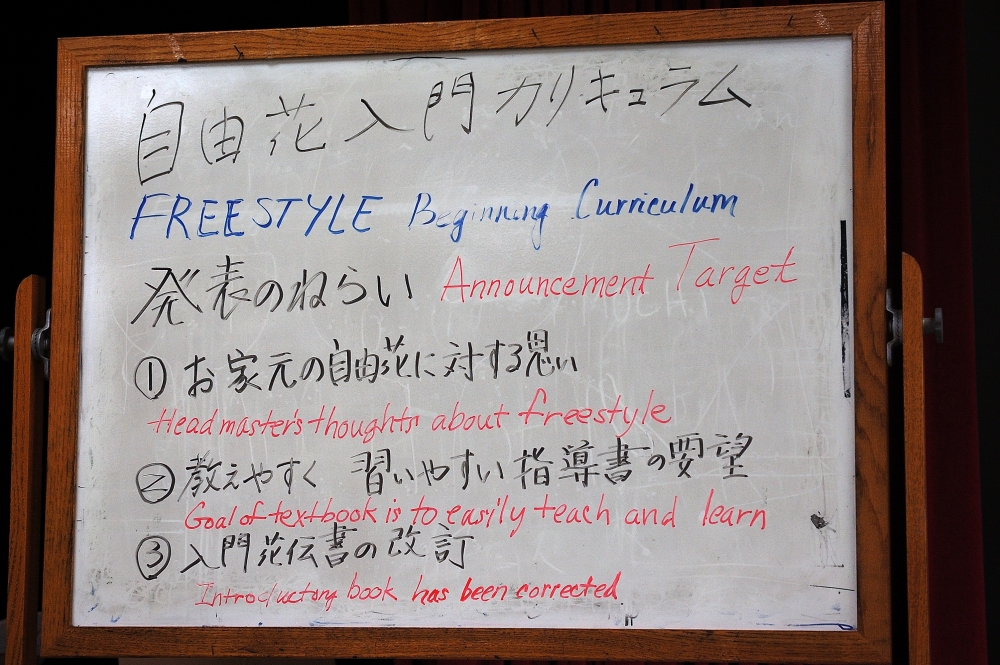 自由花入門カリキュラム
FREESTYLE Beginning Curriculum
発表のねらい Announcement Target
① お家元の自由花に対する思い
Headmaster's thoughts about freestyle
② 教えやすく 習いやすい指導書の要望
Goal of textbook is to easily teach and learn
③ 入門花伝書の改訂
Introductory book has been corrected